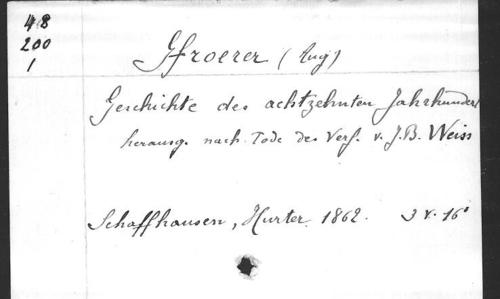 48
200
1
Gfroerer (Aug)
Geschichte des achtzehnten Jahrhundert
herausg. nach Tode des Verf. v. J.B. Weiss
Schaffhausen, Hurter. 1862. 3 v. 16º